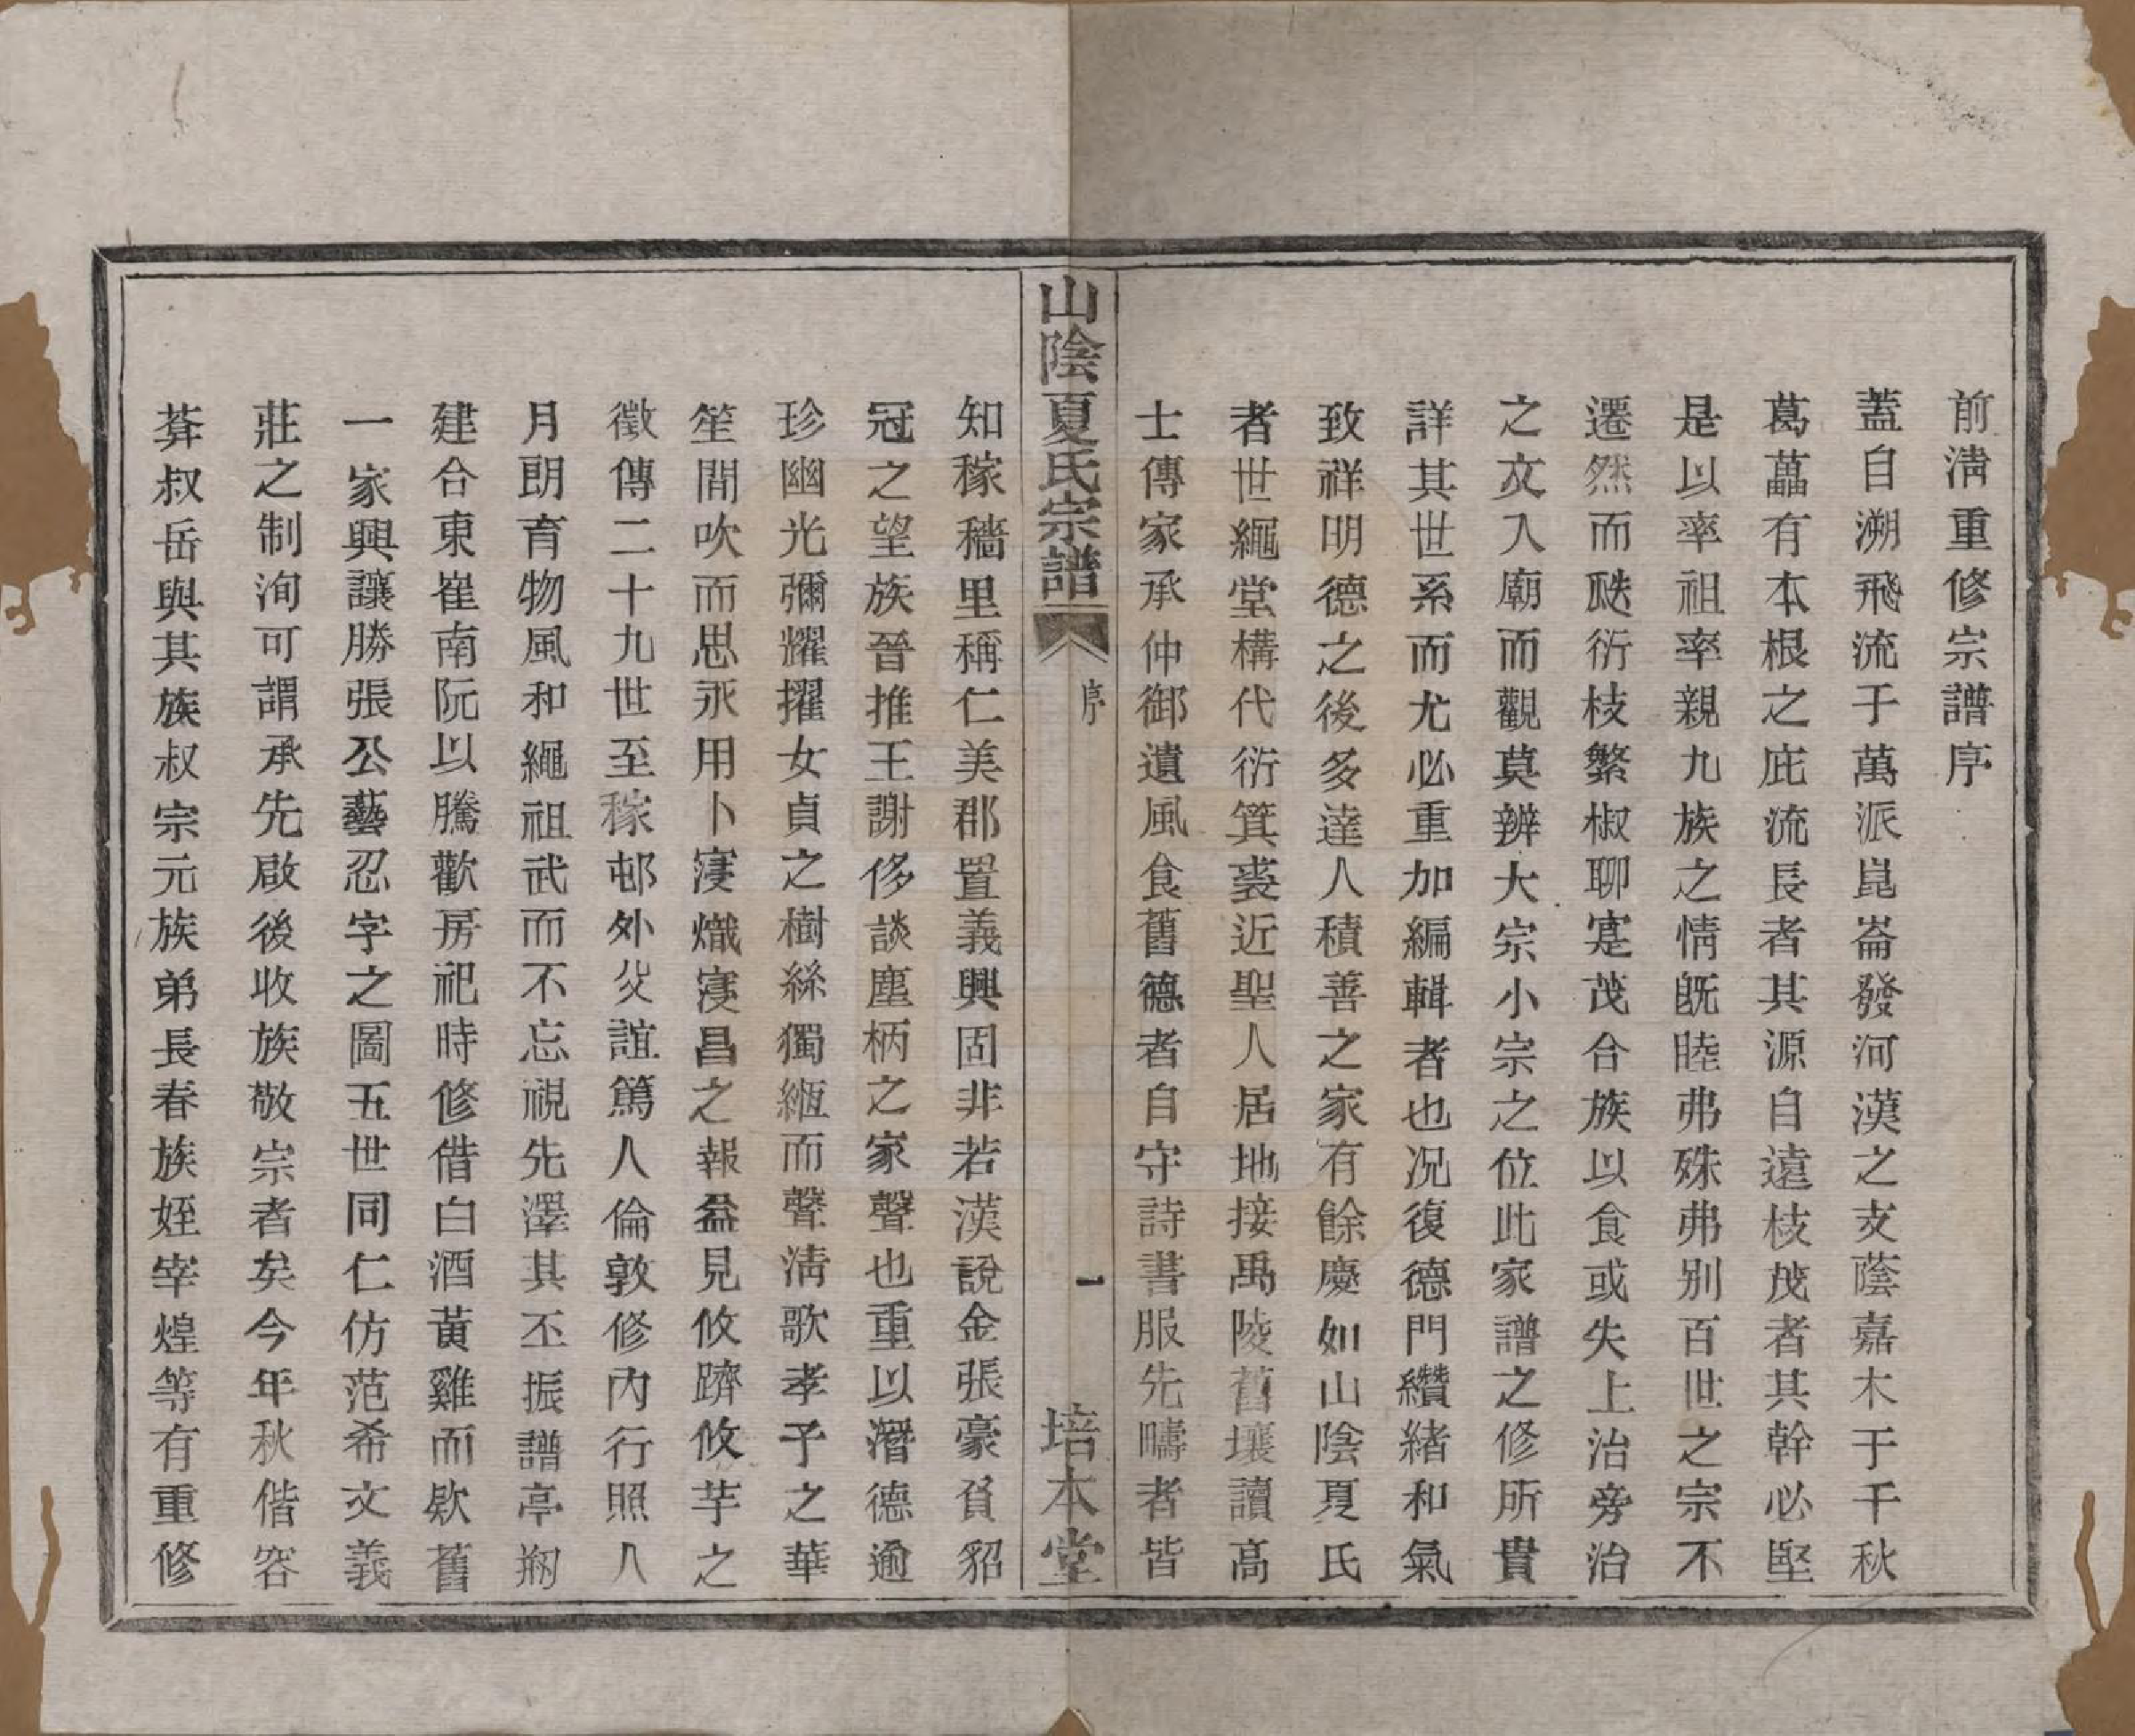 前清重修宗譜序
蓋自溯飛流于萬派崑崙發河漢之支蔭嘉木于千秋
葛藟有本根之庇流長者其源自遠枝茂者其幹必堅
是以率祖率親九族之情旣睦弗殊弗別百世之宗不
遷然而瓞衍枝繁椒聊寔茂合族以食或失上治旁治
之文入廟而觀莫辨大宗小宗之位此家譜之修所貴
詳其世系而尤必重加編輯者也況復德門纘緒和氣
致祥明德之後多達人積善之家有餘慶如山陰夏氏
者世繩堂構代衍箕裘近聖人居地接禹陵舊壤讀高
士傳家承仲御遺風食舊德者自守詩書服先疇者皆
山陰夏氏宗譜 序 一 培本堂
知稼穡里稱仁美郡置義興固非若漢說金張豪貧貂
冠之望族晉推王謝侈談塵柄之家聲也重以潛德逾
珍幽光彌耀擢女貞之樹絲獨緪而聲淸歌孝子之華
笙間吹而思永用卜寖熾寖昌之報益見攸躋攸芋之
徵傳二十九世至稼邨外父誼篤人倫敦修內行照人
月朗育物風和繩祖武而不忘視先澤其丕振譜亭刱
建合東崔南阮以騰歡房祀時修借白酒黃雞而欵舊
一家興讓勝張公藝忍字之圖五世同仁仿范希文義
莊之制洵可謂承先啟後收族敬宗者矣今年秋偕容
莽叔岳與其族叔宗元族弟長春族姪宰煌等有重修